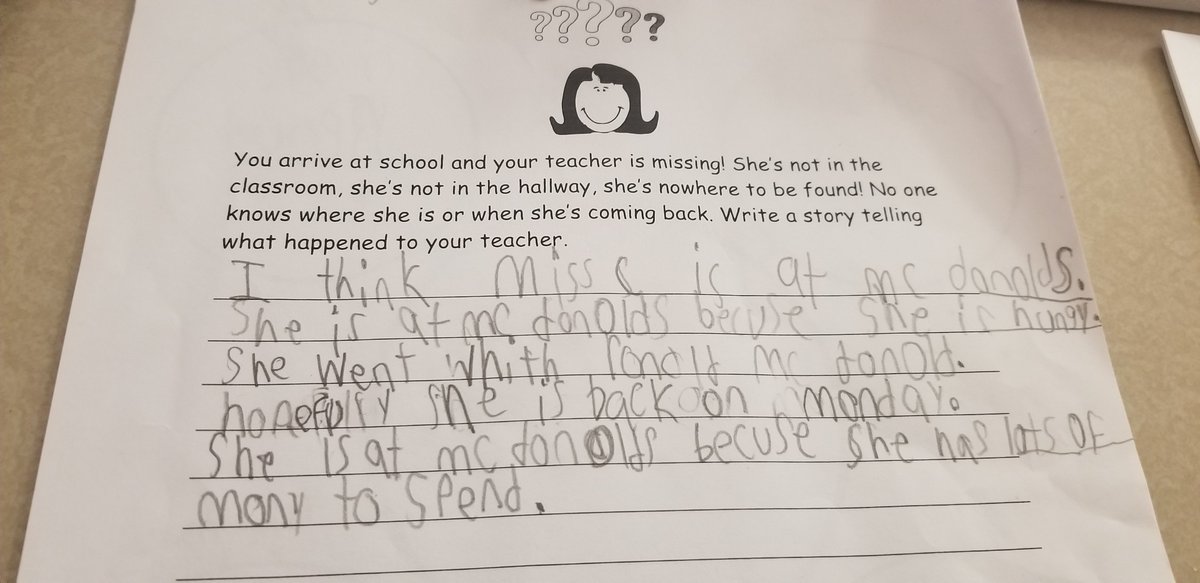 ?????
You arrive at school and your teacher is missing! She's not in the
classroom, she's not in the hallway, she's nowhere to be found! No one
knows where she is or when she's coming back. Write a story telling
what happened to your teacher.
I think Miss S is at mc donalds.
She is at mc donolds becuse she is hungy.
She went whith ronold mc donold.
hopefply she is back on monday.
She is at mc donolds becuse she has lots of
mony to spend.